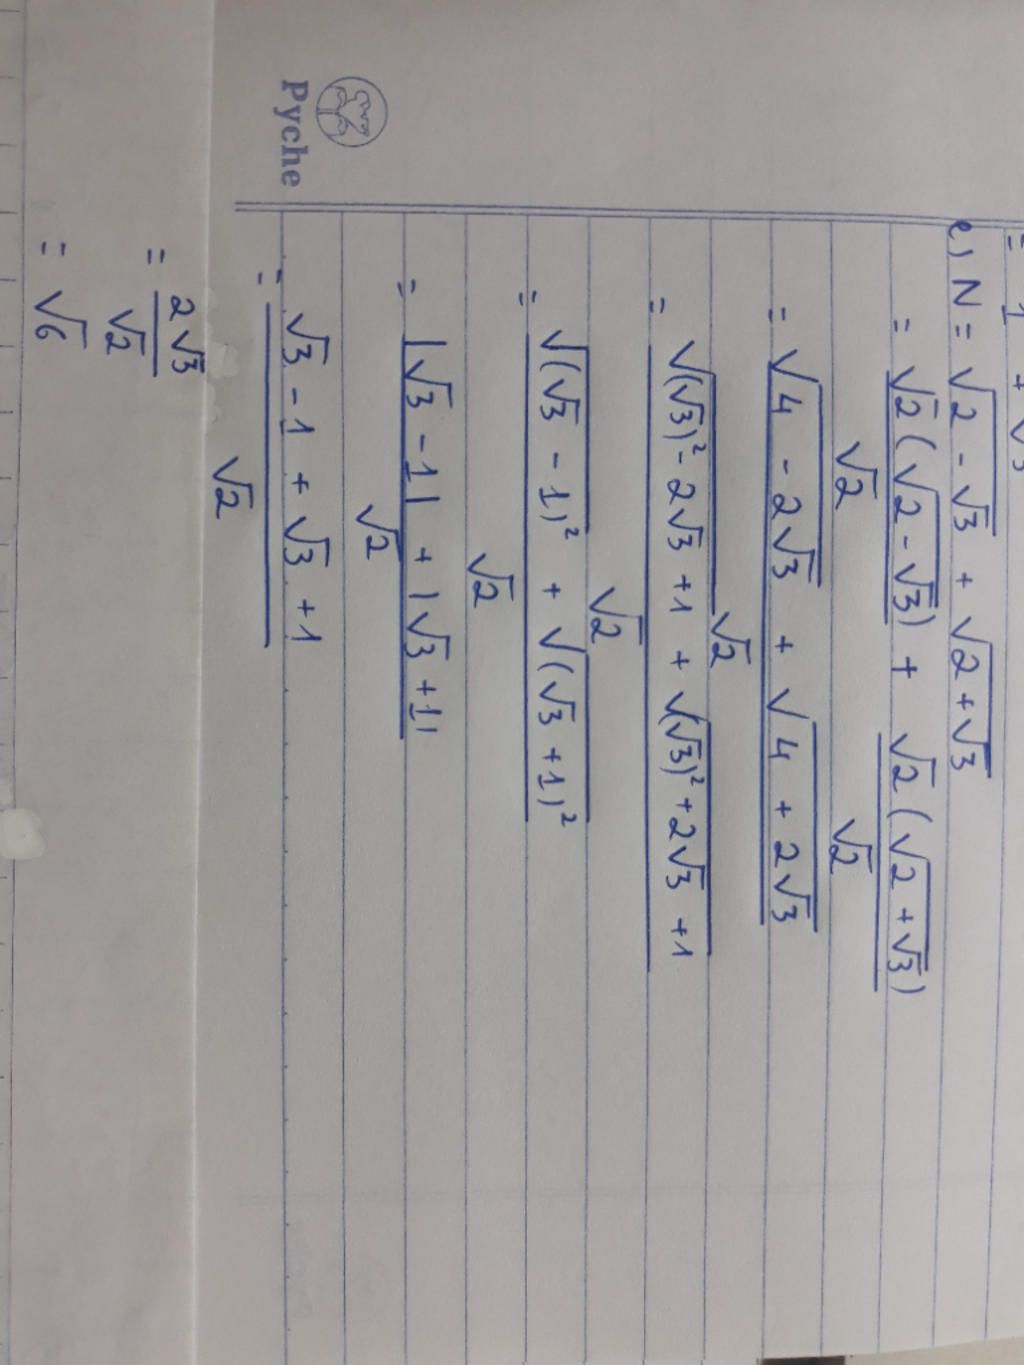 Pyche
= 1 + √3
e) N = √(2 - √3) + √(2 + √3)
= √2 (√(2 - √3)) / √2 + √2 (√(2 + √3)) / √2
= (√(4 - 2√3) + √(4 + 2√3)) / √2
= (√((√3)² - 2√3 + 1) + √((√3)² + 2√3 + 1)) / √2
= (√((√3 - 1)²) + √((√3 + 1)²)) / √2
= (|√3 - 1| + |√3 + 1|) / √2
= (√3 - 1 + √3 + 1) / √2
= 2√3 / √2
= √6